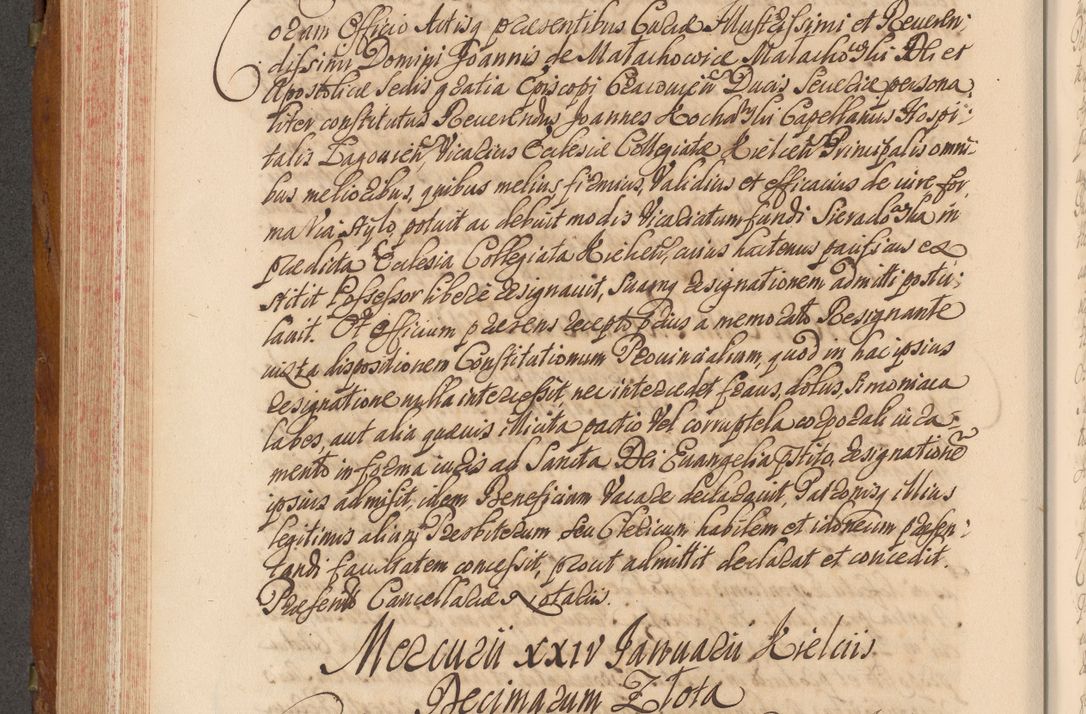 oram Officio Actisq præsentibus Curiæ Illustrissimi et Reveren:
dissimi Domini Joannis de Małachowice Małachowski Dei et
Apostolicæ Sedis gratia Episcopi Cracovien Ducis Severiæ persona
liter constitutus Reverendus Joannes Kochański Capellanus Hospi:
talis Łagovien Vicarius Ecclesiæ Collegiatæ Kielcen Principalis omni:
bus melioribus, quibus melius firmius, Validius et efficacius de iure for
ma Via Stylo potuit ac debuit modis Vicariatum fundi Sieradowska in
prædicta Ecclesia Collegiata Kielcen, cuius hactenus pacificus ex
stitit Possessor libere resignavit, Suamq resignationem admitti postu:
lavit. Et Officium præsens recepto prius a memorato Resignante
iuxta dispositionem Constitutionum Provincialium, quod in hac ipsius
resignatione nulla intercessit nec intercedet fraus, dolus, Simoniaca
labes, aut alia quævis illicita pactio Vel corruptela corporali iura=
mento in forma iuris ad Sancta Dei Evangelia pstito, resignatione
ipsius admisit, idem Beneficium Vacare declaravit, Patronisq illius
legitimis alium Presbiterum seu Clericum habilem et idoneum præsen:
tandi facultatem concessit, prout admittit declarat et concedit.
Præsente Cancellariæ Notario.
Mercurii XXIV Januarii Kielciis
Decimarum Złota